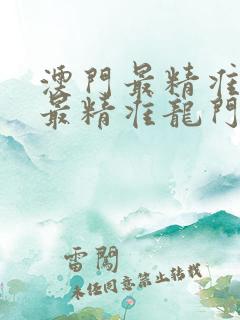 澳門最精准
最精准龍門
雷闖
未任同意禁止转载